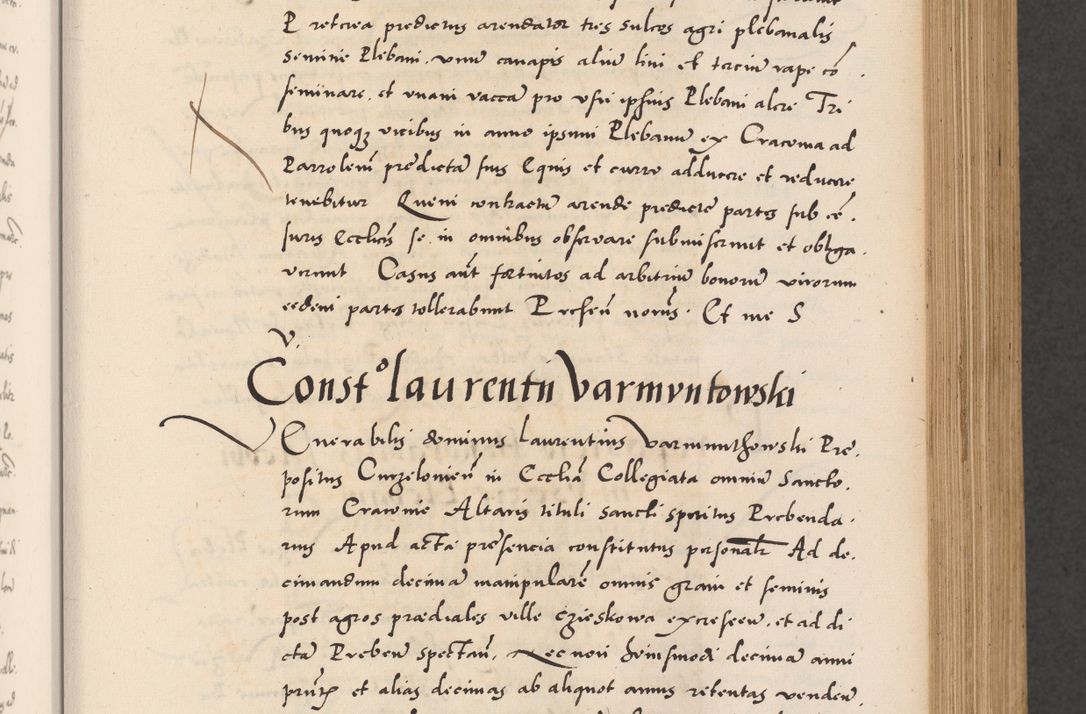 P retcrea predictus arendator tres sulcos agri plebanalis
semine Plebani. vnum canapis aliud lini et tercium rape cō
seminare, et vnam vaccam pro vsu ipsius Plebani alere Tri
bus quoqꝫ vicibus in anno ipsum Plebanum ex Cracouia ad
Parrochiam predictam suis Equis et curro adducere et reducere
tenebitur Quem contractum arende predicte partes sub cē.
suris Ecclicis se in omnibus obseruare submiserunt et obliga.
uerunt Casus aūt fortuitos ad arbitrium bonorum virorum
eedem partes tollerabunt Presen̄ no Et me S
V.
Constᵒ laurentii Varmyntowski
Venerabilis dominus Laurentius Varmunthowski Pre.
positus Curzelonien̄ in Ecclīa Collegiata omnium Sancto.
rum Cracouie Altaris tituli Sancti Spiritus Prebenda.
rius Apud acta presencia constitutus personalr Ad de.
cimandum decimam manipularem omnis grani et seminis
post agros prædiales ville excrescen̄. et ad di
ctam Preben̄ spectan̄. Necnon huiusmodi decimam anni
prn̄tꝭ et alias decimas ab aliquot annis retentas venden̄.